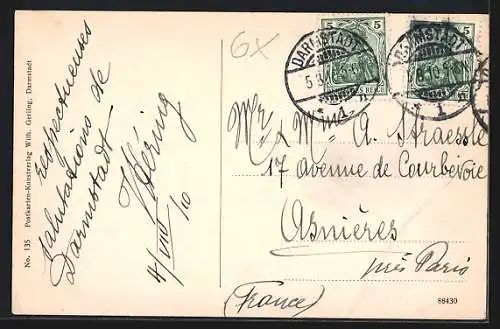 No. 135 Postkarten-Kunstverlag Wilh. Gerling, Darmstadt
respectueuses
salutations de
Darmstadt
4/VIII 10
6x
5
5
DARMSTADT
DARMSTADT
8.10
1
1
Mr & Mme A. Straessle
17 avenue de Courbevoie
Asnières
près Paris
(France)
88430